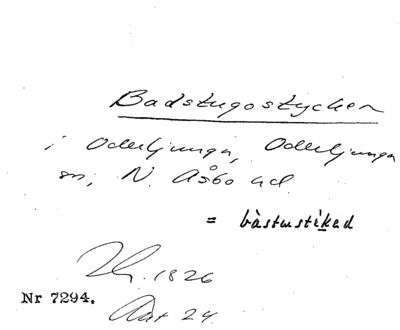 Badstugostycken
i Oderljunga, Oderljunga
sn, N. Åsbo hd.
= bàstustíkad
1826
Nr 7294.
Akt 24